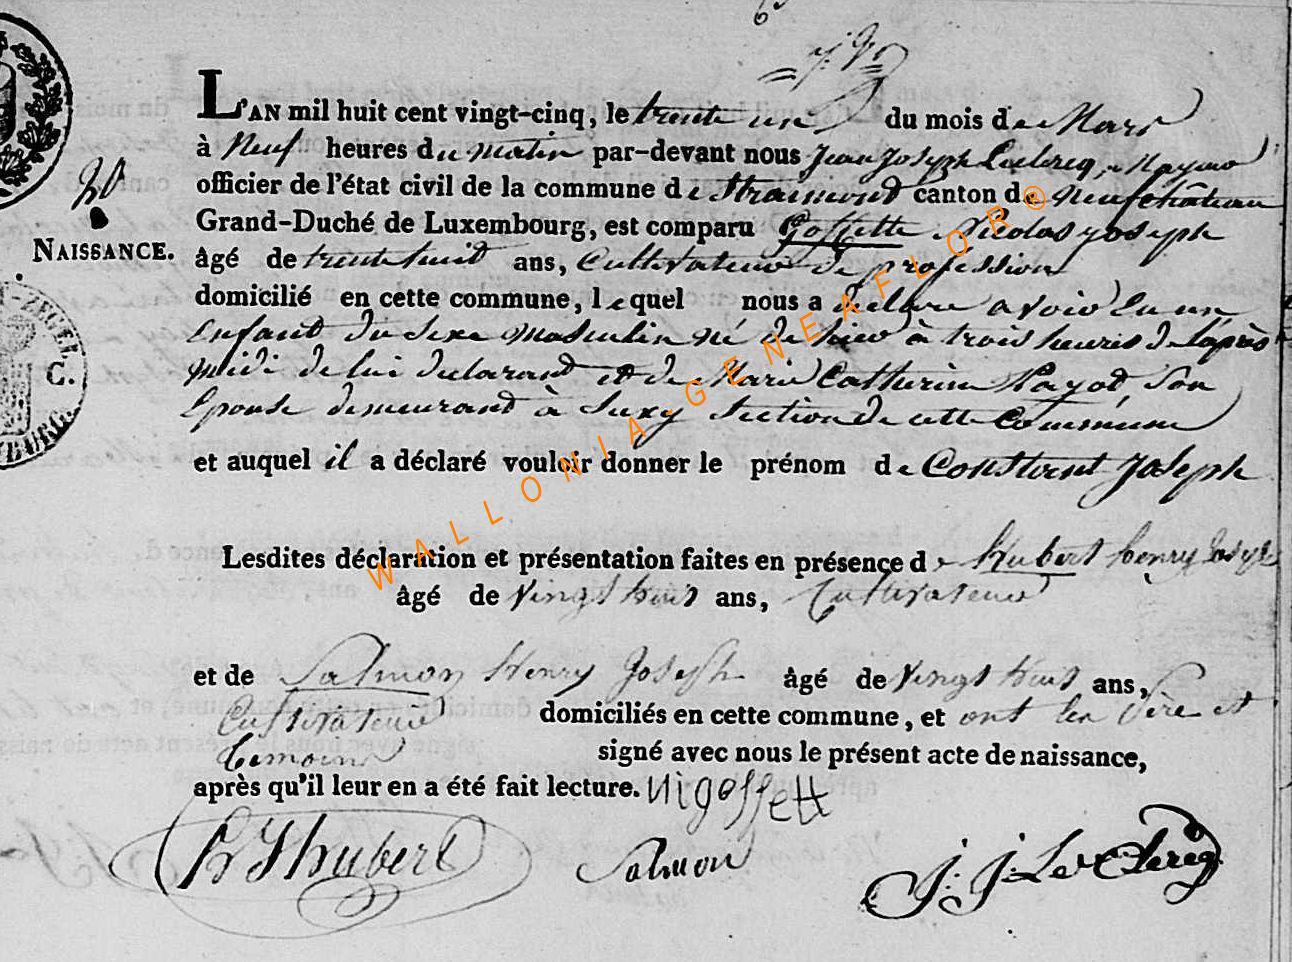 L'AN mil huit cent vingt-cinq, le trente un du mois de Mars
à Neuf heures du matin par-devant nous Jean Joseph Leclercq, Mayeur
officier de l'état civil de la commune de Straimont canton de Neufchâteau
Grand-Duché de Luxembourg, est comparu Goffette Nicolas Joseph
NAISSANCE.
âgé de trente huit ans, Cultivateur de profession
domicilié en cette commune, lequel nous a déclaré avoir eu un
Enfant du Sexe Masculin né de hier à trois heures de l'après
midi de lui déclarant et de Marie Catherine Payot, Son
Epouse demeurant à Suxy Section de cette Commune
et auquel il a déclaré vouloir donner le prénom de Constant Joseph
Lesdites déclaration et présentation faites en présence de Hubert henry Joseph
âgé de Vingt huit ans, Cultivateur
et de Salmon Henry Joseph âgé de Vingt huit ans,
Cultivateur domiciliés en cette commune, et ont les Père et
temoins signé avec nous le présent acte de naissance,
après qu'il leur en a été fait lecture. Nigoffett
hJhubert Salmon J: J: Le Clercq
C.
WALLONIA-GENEAFLOR®